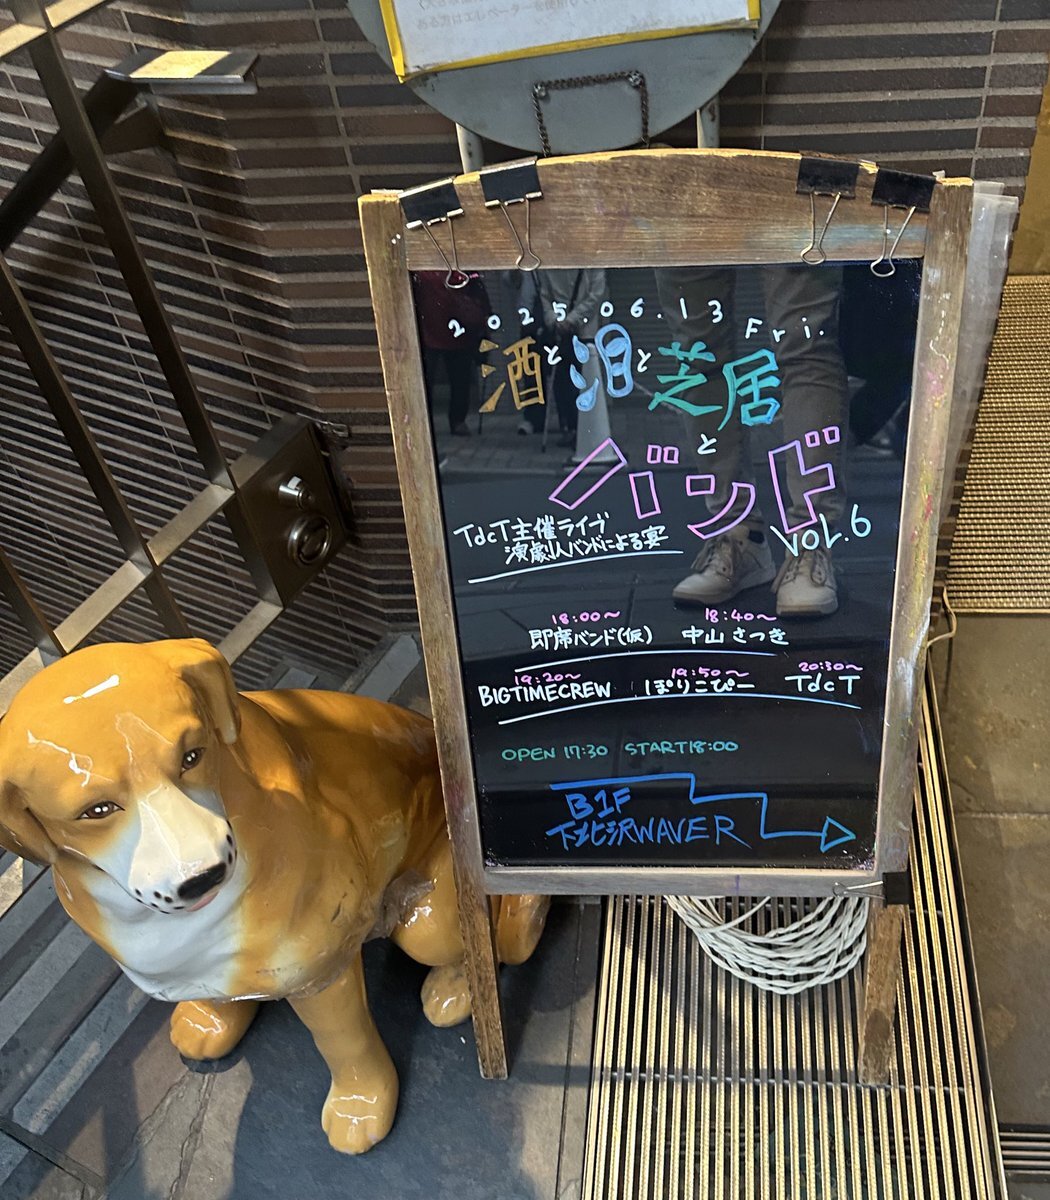 2025.06.13 Fri.
酒と泪と芝居
と
バンド
VOL.6
TdcT主催ライブ
演劇人バンドによる宴
18:00〜 18:40〜
即席バンド(仮) 中山さつき
19:20〜 19:50〜 20:30〜
BIGTIMECREW ぽりこぴー TdcT
OPEN 17:30 START18:00
B1F
下北沢WAVER